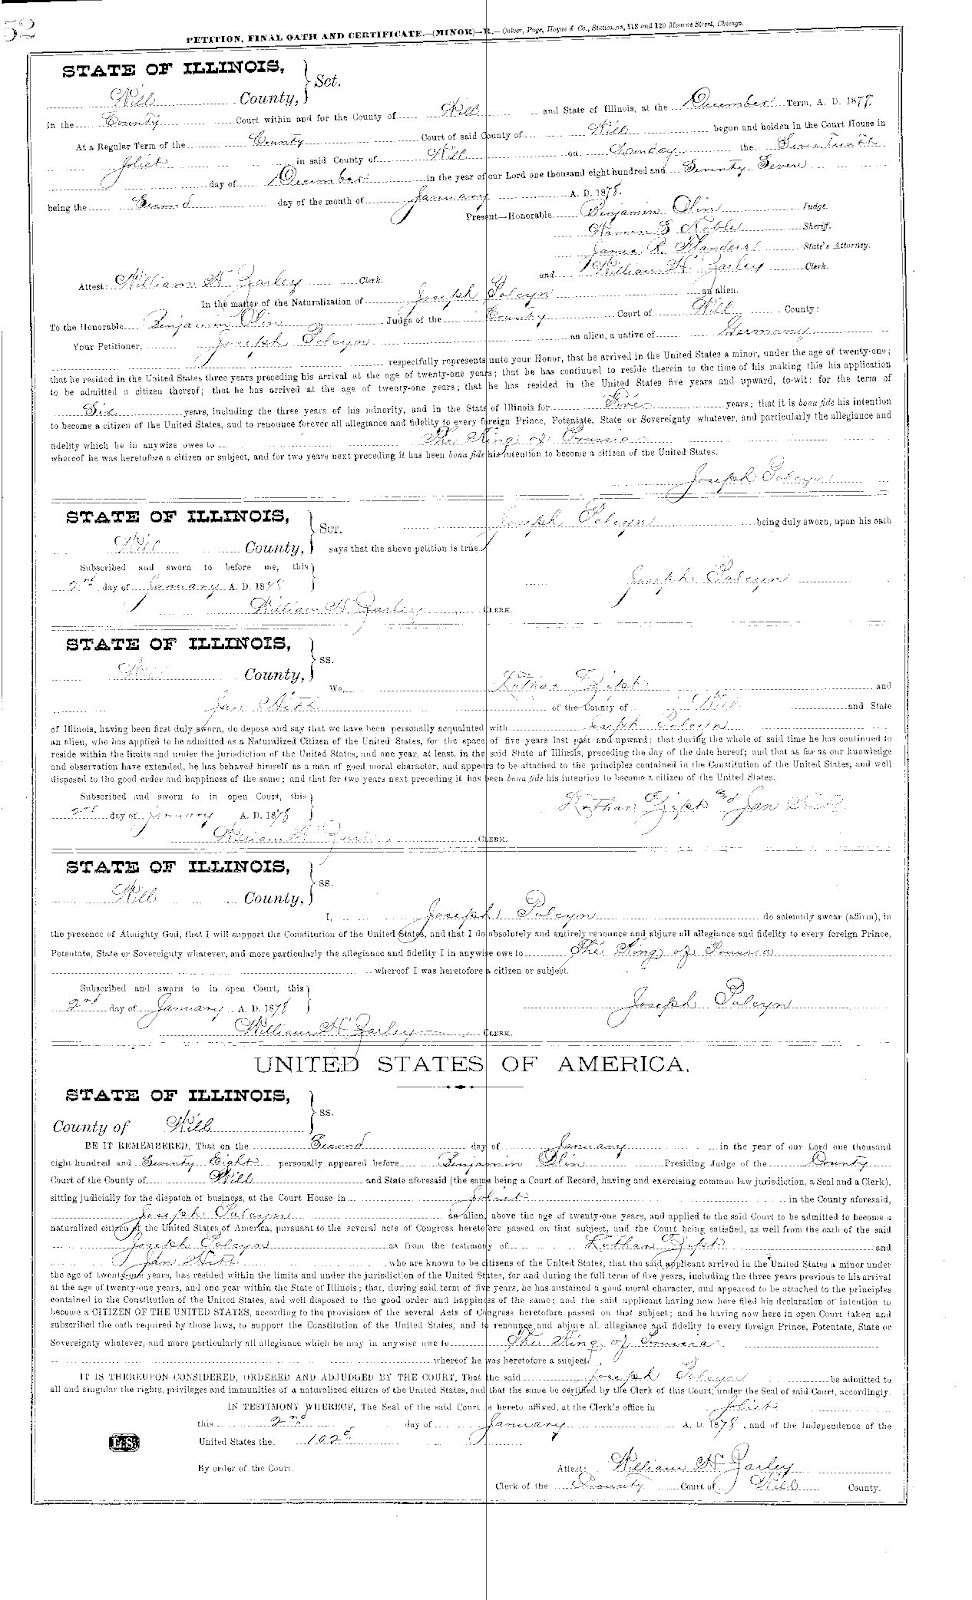 52
PETITION, FINAL OATH AND CERTIFICATE.—(MINOR)—R.— Culver, Page, Hoyne & Co., Stationers, 118 and 120 Monroe Street, Chicago.
STATE OF ILLINOIS,
Will County, Sct.
in the County Court within and for the County of Will and State of Illinois, at the December Term, A. D. 1877.
At a Regular Term of the County Court of said County of Will begun and holden in the Court House in
Joliet in said County of Will on Monday the Seventeenth
day of December in the year of our Lord one thousand eight hundred and Seventy Seven
being the Second day of the month of January A. D. 1878.
Present—Honorable Benjamin Olin Judge.
Noble Sheriff.
James R. Flanders State's Attorney.
and William H. Zarley Clerk.
Attest: William H Zarley Clerk.
In the matter of the Naturalization of Joseph Polcyn an alien.
To the Honorable Benjamin Olin Judge of the County Court of Will County:
Your Petitioner, Joseph Polcyn an alien, a native of Germany
respectfully represents unto your Honor, that he arrived in the United States a minor, under the age of twenty-one;
that he resided in the United States three years preceding his arrival at the age of twenty-one years; that he has continued to reside therein to the time of his making this his application
to be admitted a citizen thereof; that he has arrived at the age of twenty-one years; that he has resided in the United States five years and upward, to-wit: for the term of
Six years, including the three years of his minority, and in the State of Illinois for Five years; that it is bona fide his intention
to become a citizen of the United States, and to renounce forever all allegiance and fidelity to every foreign Prince, Potentate, State or Sovereignty whatever, and particularly the allegiance and
fidelity which he in anywise owes to The King of Prussia
whereof he was heretofore a citizen or subject, and for two years next preceding it has been bona fide his intention to become a citizen of the United States.
Joseph Polcyn
STATE OF ILLINOIS,
Will County, Sct. Joseph Polcyn being duly sworn, upon his oath
says that the above petition is true.
Subscribed and sworn to before me, this
2nd day of January A. D. 1878
Joseph Polcyn
William H Zarley CLERK.
STATE OF ILLINOIS,
Will County, ss.
We, Zipp and
Jan of the County of Will and State
of Illinois, having been first duly sworn, do depose and say that we have been personally acquainted with Joseph Polcyn
an alien, who has applied to be admitted as a Naturalized Citizen of the United States, for the space of five years last past and upward; that during the whole of said time he has continued to
reside within the limits and under the jurisdiction of the United States, and one year, at least, in the said State of Illinois, preceding the day of the date hereof; and that as far as our knowledge
and observation have extended, he has behaved himself as a man of good moral character, and appears to be attached to the principles contained in the Constitution of the United States, and well
disposed to the good order and happiness of the same; and that for two years next preceding it has been bona fide his intention to become a citizen of the United States.
Subscribed and sworn to in open Court, this
2nd day of January A. D. 1878
Zipp and Jan
William H Zarley CLERK.
STATE OF ILLINOIS,
Will County, ss.
I, Joseph Polcyn do solemnly swear (affirm), in
the presence of Almighty God, that I will support the Constitution of the United States, and that I do absolutely and entirely renounce and abjure all allegiance and fidelity to every foreign Prince,
Potentate, State or Sovereignty whatever, and more particularly the allegiance and fidelity I in anywise owe to The King of Prussia
whereof I was heretofore a citizen or subject.
Subscribed and sworn to in open Court, this
2nd day of January A. D. 1878
Joseph Polcyn
William H Zarley CLERK.
UNITED STATES OF AMERICA.
STATE OF ILLINOIS,
County of Will ss.
BE IT REMEMBERED, That on the Second day of January in the year of our Lord one thousand
eight hundred and Seventy Eight personally appeared before Benjamin Olin Presiding Judge of the County
Court of the County of Will and State aforesaid (the same being a Court of Record, having and exercising common law jurisdiction, a Seal and a Clerk),
sitting judicially for the dispatch of business, at the Court House in Joliet in the County aforesaid,
Joseph Polcyn an alien, above the age of twenty-one years, and applied to the said Court to be admitted to become a
naturalized citizen of the United States of America, pursuant to the several acts of Congress heretofore passed on that subject, and the Court being satisfied, as well from the oath of the said
Joseph Polcyn as from the testimony of Zipp and
Jan who are known to be citizens of the United States, that the said applicant arrived in the United States a minor under
the age of twenty-one years, has resided within the limits and under the jurisdiction of the United States, for and during the full term of five years, including the three years previous to his arrival
at the age of twenty-one years, and one year within the State of Illinois; that, during said term of five years, he has sustained a good moral character, and appeared to be attached to the principles
contained in the Constitution of the United States, and well disposed to the good order and happiness of the same; and the said applicant having now here filed his declaration of intention to
become a CITIZEN OF THE UNITED STATES, according to the provisions of the several Acts of Congress heretofore passed on that subject; and he having now here in open Court taken and
subscribed the oath required by those laws, to support the Constitution of the United States, and to renounce and abjure all allegiance and fidelity to every foreign Prince, Potentate, State or
Sovereignty whatever, and more particularly all allegiance which he may in anywise owe to The King of Prussia
whereof he was heretofore a subject.
IT IS THEREUPON CONSIDERED, ORDERED AND ADJUDGED BY THE COURT, That the said Joseph Polcyn be admitted to
all and singular the rights, privileges and immunities of a naturalized citizen of the United States, and that the same be certified by the Clerk of this Court, under the Seal of said Court, accordingly.
IN TESTIMONY WHEREOF, The Seal of the said Court is hereto affixed, at the Clerk's office in Joliet
this 2nd day of January A. D. 1878, and of the Independence of the
L.S. United States the 102d
By order of the Court. Attest: William H Zarley
Clerk of the County Court of Will County.